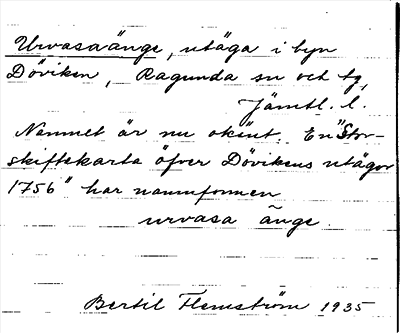 Urvasaänge, utäga i byn
Döviken, Ragunda sn och tg,
Jämtl. l.
Namnet är nu okänt. En "Stor-
skiftekarta öfver Dövikens utägor
1756" har namnformen
urvasa änge.
Bertil Flemström 1935